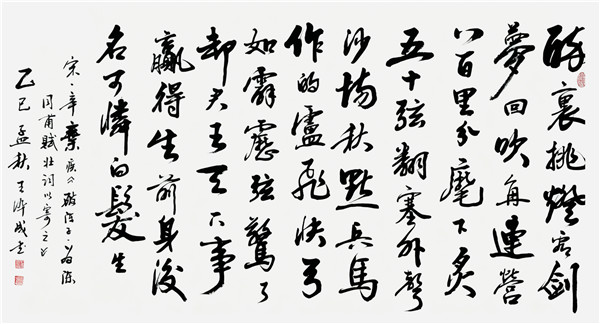 醉裏挑燈看劍
夢回吹角連營
八百里分麾下炙
五十弦翻塞外聲
沙場秋點兵馬
作的盧飛快弓
如霹靂弦驚了
却君王天下事
贏得生前身後
名可憐白髮生
宋·辛棄疾《破陣子·为陳
同甫賦壯詞以寄之》
乙巳孟秋王成书